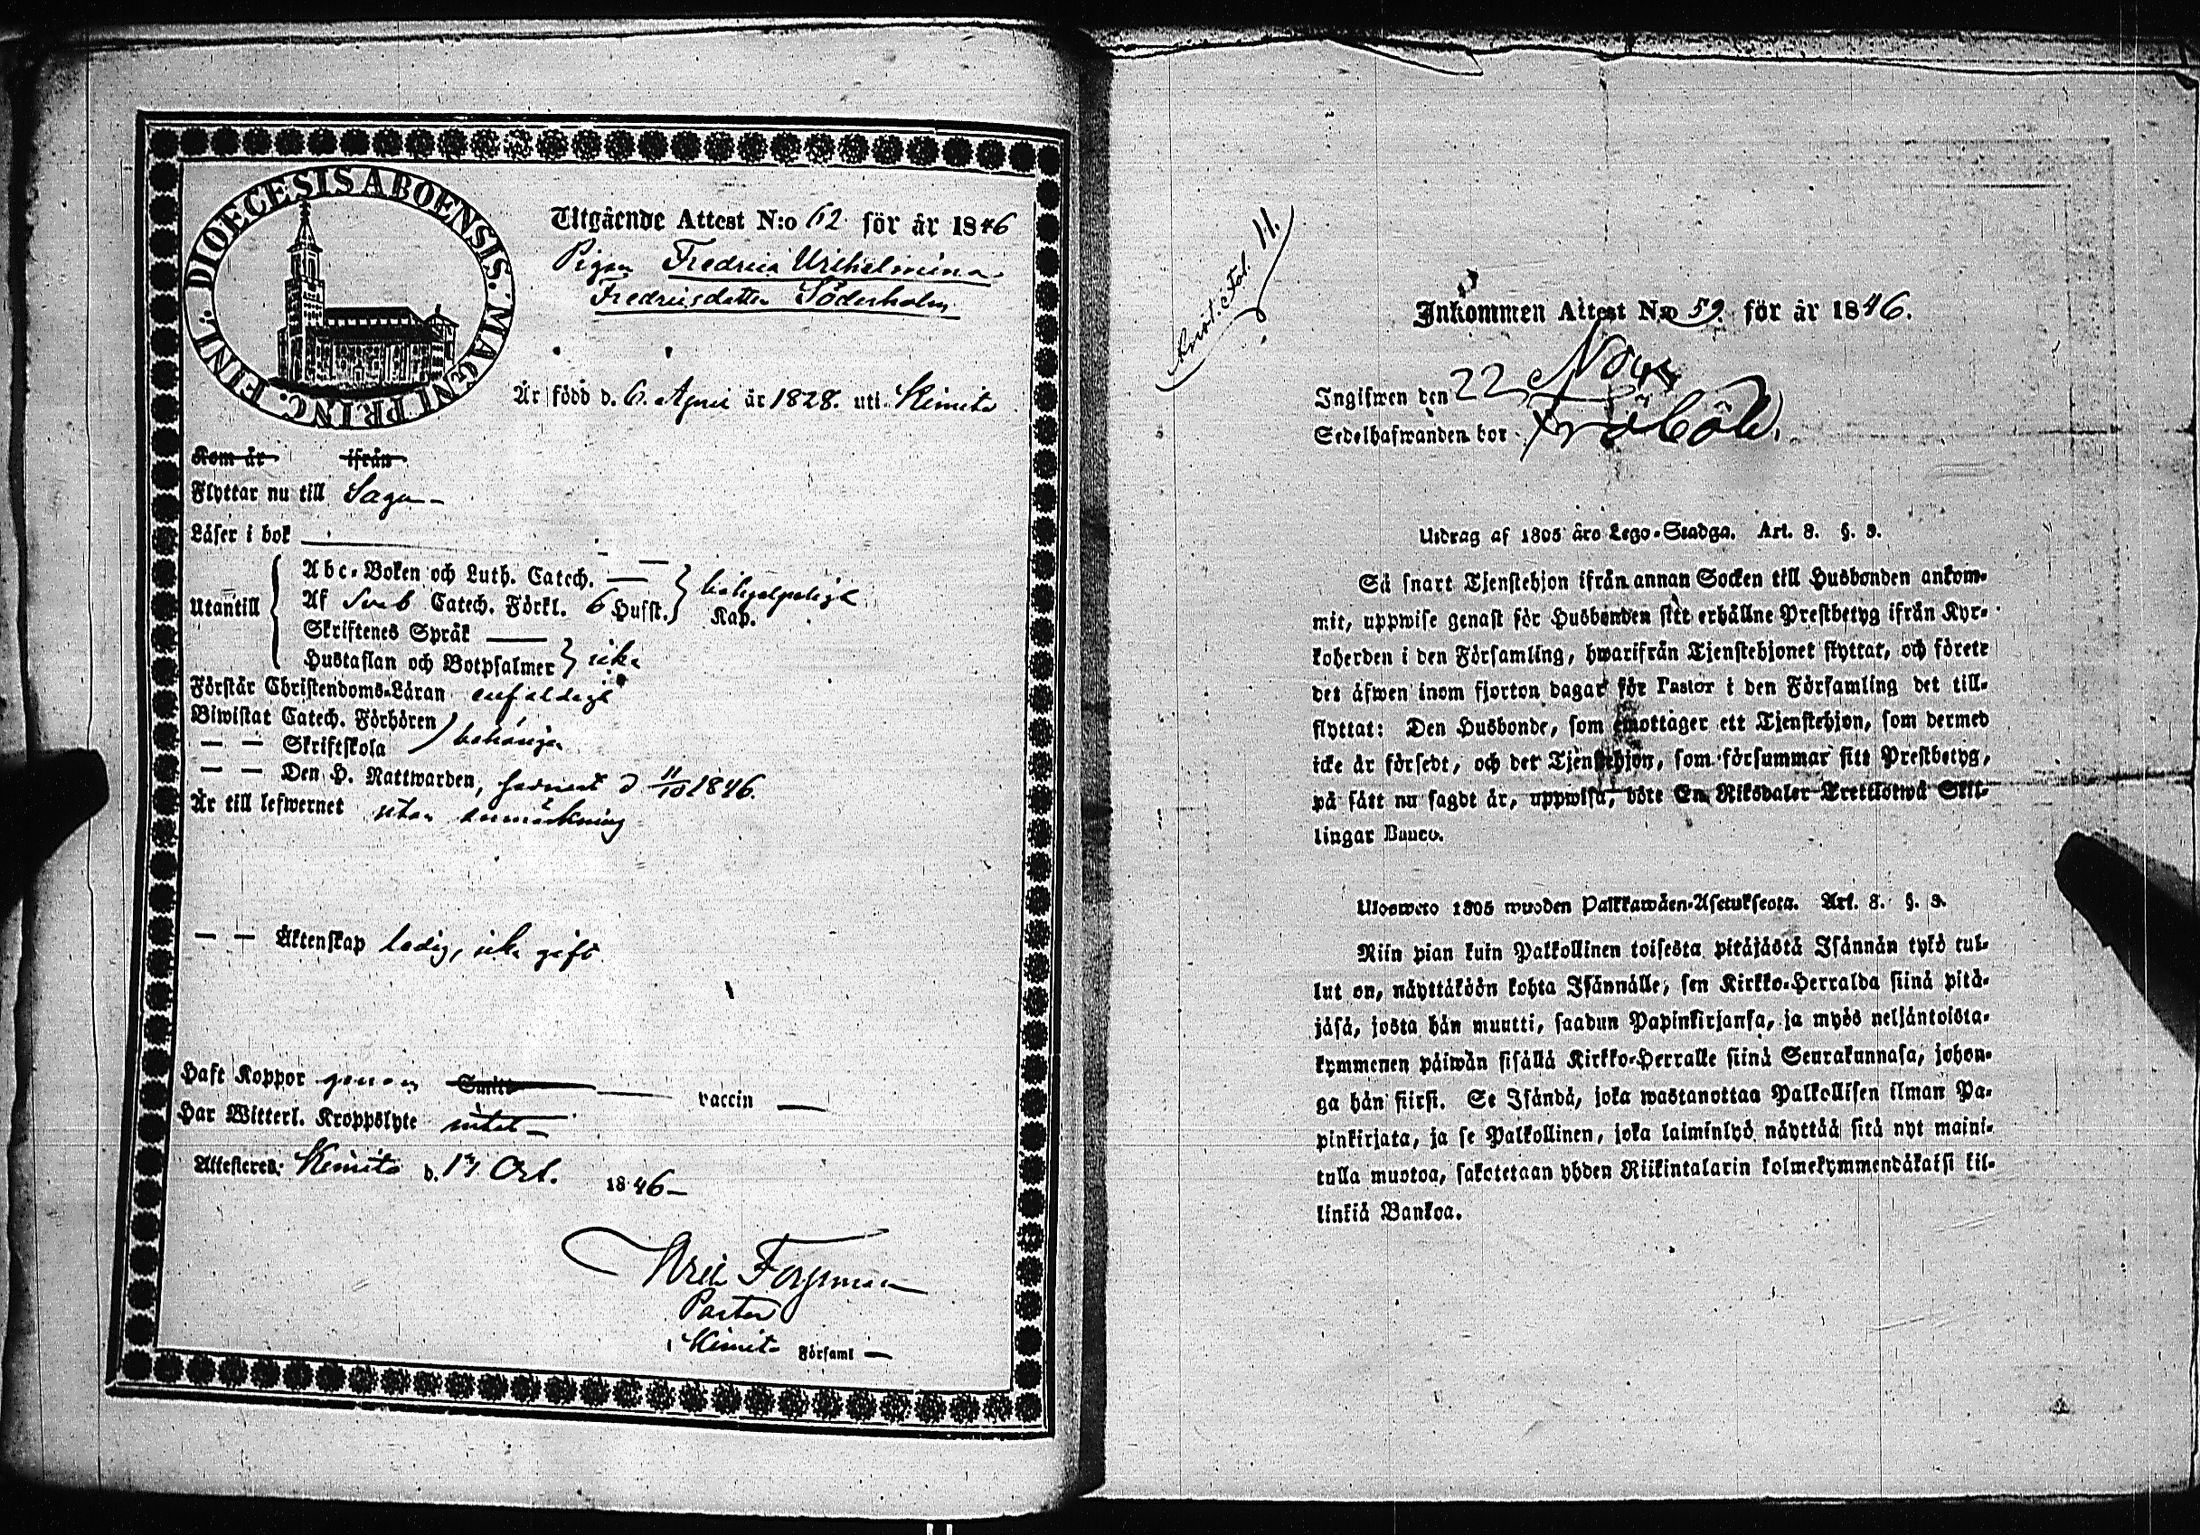 DIOECESIS ABOENSIS. MAGNI PRINC. FINL.
Utgående Attest N:o 62 för år 1846
Pigan Fredrica Wilhelmina
Fredricsdotter Söderholm
Är född d. 6. April år 1828. uti Kimito
Kom år ifrån
Flyttar nu till Sagu
Läser i bok
Utantill
Abc-Boken och Luth. Catech.
Af Sveb Catech. Förkl. 6 Hufst. Kap.
Skriftenes Språk
Hustaflan och Botpsalmer icke
Förstår Christendoms-Läran enfaldigt
Biwistat Catech. Förhören
— — Skriftskola behörigen
— — Den H. Nattwarden, senast d 11/10 1846.
Är till lefwernet utan anmärkning
— — Äktenskap ledig, icke gift
Haft Koppor genom Smitt vaccin
Har Witterl. Kroppslyte intet
Attesteras: Kimito d. 17 Oct. 1846
Pastor
i Kimito Församl
Inkommen Attest N:o 59. för år 1846.
Ingifwen den 22 Nov
Sedelhafwanden bor
Utdrag af 1805 års Lego-Stadga. Art. 8. §. 3.
Så snart Tjenstehjon ifrån annan Socken till Husbonden ankom-
mit, uppwise genast för Husbonden sitt erhållne Prestbetyg ifrån Kyr-
koherden i den Församling, hwarifrån Tjenstehjonet flyttat, och förete
det äfwen inom fjorton dagar för Pastor i den Församling det till-
flyttat: Den Husbonde, som emottager ett Tjenstehjon, som dermed
icke är försedt, och det Tjenstehjon, som försummar sitt Prestbetyg,
på sätt nu sagdt är, uppwisa, böte En Riksdaler Trettiotwå Skil-
lingar Banco.
Ulosweto 1805 wuoden Palkkawäen-Asetuksesta. Art. 8. §. 3.
Niin pian kuin Palkollinen toisesta pitäjästä Isännän tykö tul-
lut on, näyttäköön kohta Isännälle, sen Kirkko-Herralda siinä pitä-
jäsä, josta hän muutti, saadun Papinkirjansa, ja myös neljäntoista-
kymmenen päiwän sisällä Kirkko-Herralle siinä Seurakunnasa, johon-
ga hän siirsi. Se Isändä, joka wastanottaa Palkollisen ilman Pa-
pinkirjata, ja se Palkollinen, joka laiminlyö näyttää sitä nyt maini-
tulla muotoa, sakotetaan yhden Riikintalarin kolmekymmendäkaksi kil-
linkiä Bankoa.